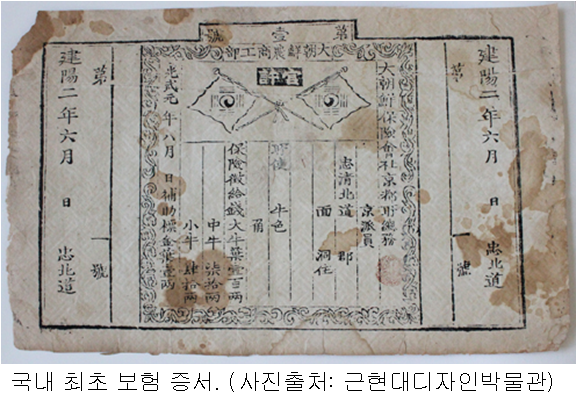 第壹號
大朝鮮農商工部
官許
建陽二年六月 日 忠北道
第 一號
大朝鮮保險會社京務所總務
京派員
忠清北道 郡
面 洞住
牛色
保險徵給錢大牛葉壹百兩
中牛 柒拾兩
小牛 肆拾兩
光武元年八月 日補助標金葉壹兩
第 一號
建陽二年六月 日 忠北道
국내 최초 보험 증서. (사진출처: 근현대디자인박물관)